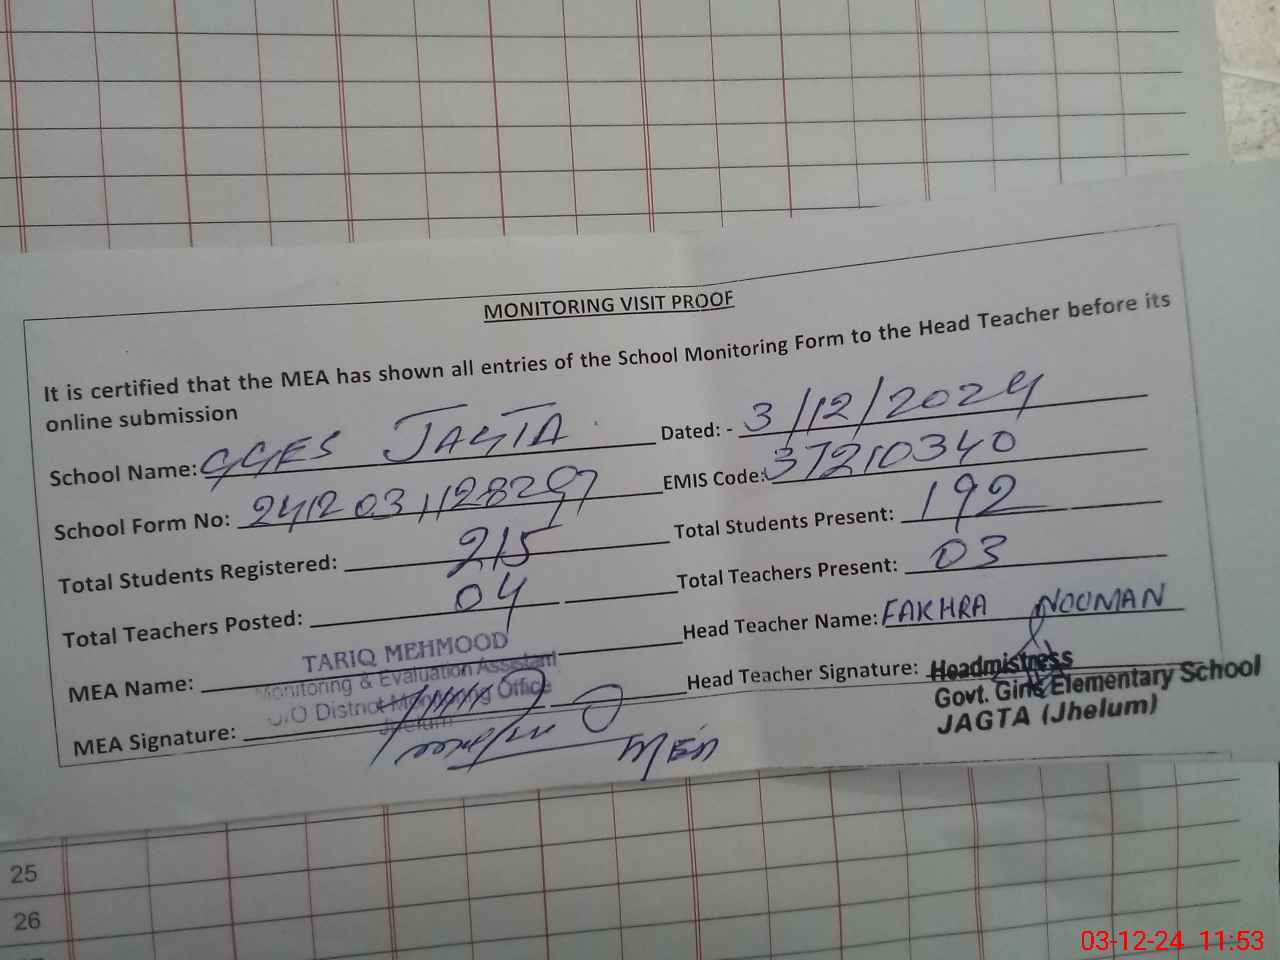 MONITORING VISIT PROOF
It is certified that the MEA has shown all entries of the School Monitoring Form to the Head Teacher before its
online submission
School Name: GGES JAGTA Dated: - 3/12/2024
School Form No: 241203112829 EMIS Code: 37210340
Total Students Registered: 215 Total Students Present: 192
Total Teachers Posted: 04 Total Teachers Present: 03
MEA Name: TARIQ MEHMOOD Head Teacher Name: FAKHRA NOOMAN
Monitoring & Evaluation Assistant
O/O District Monitoring Office
Jhelum
MEA Signature: Head Teacher Signature: Headmistress
Govt. Girls Elementary School
JAGTA (Jhelum)
MEA
25
26
03-12-24 11:53